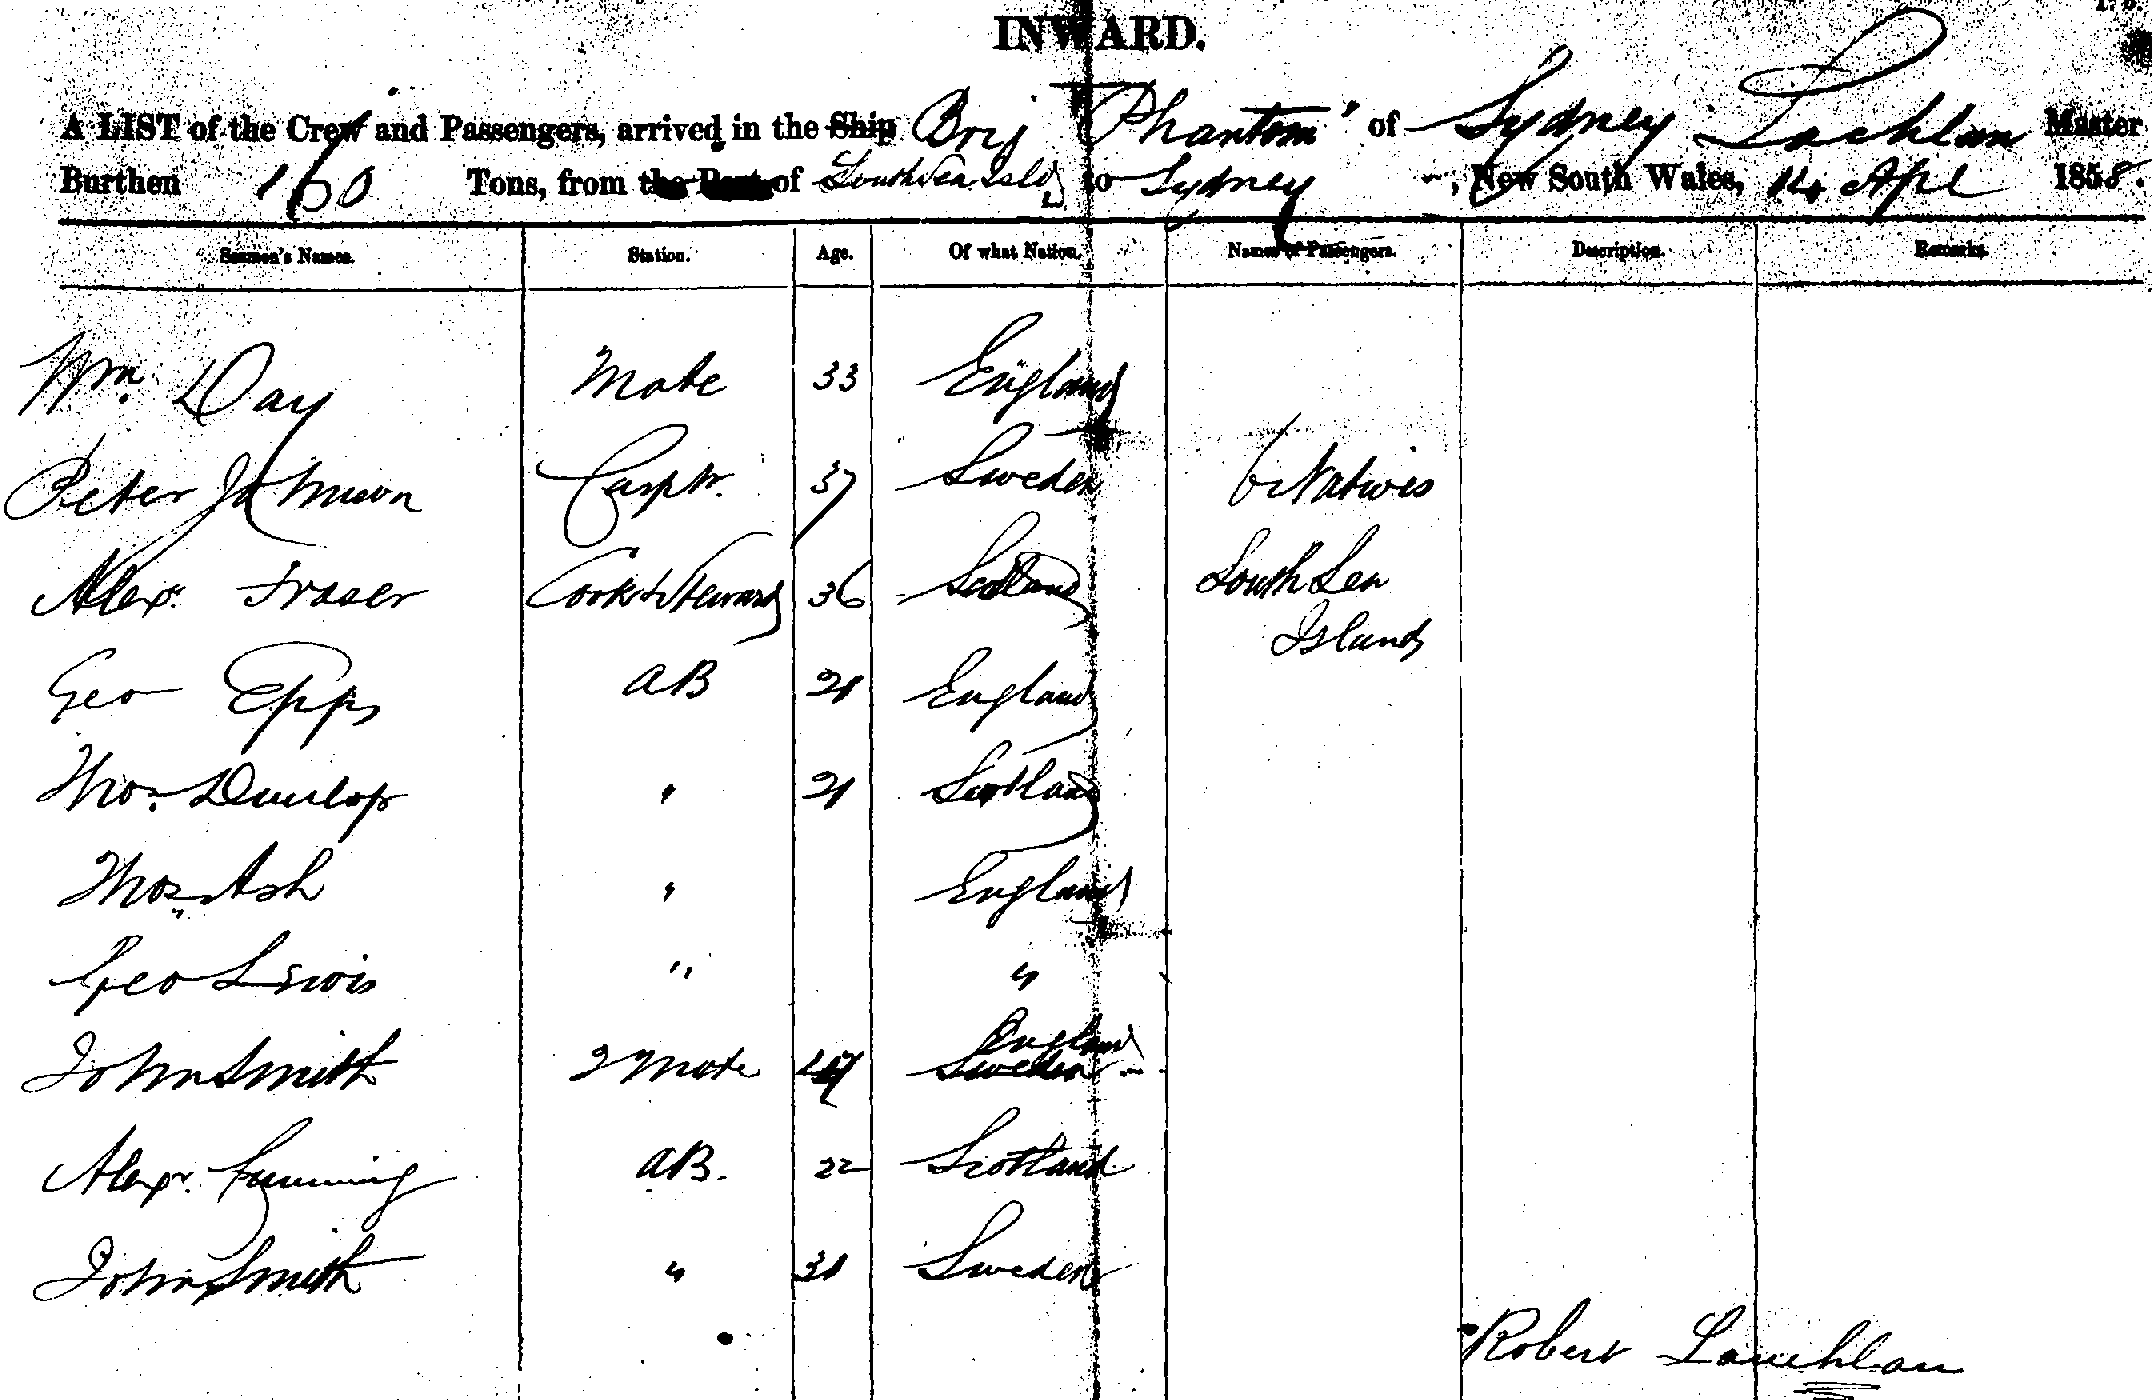 INWARD.
A LIST of the Crew and Passengers, arrived in the Ship Brig "Phantom" of Sydney Lachlan Master
Burthen 160 Tons, from the Port of South Sea Isld to Sydney, New South Wales, 14 Apl 1858.
Seamen's Names. Station. Age. Of what Nation. Names of Passengers. Description. Remarks.
Wm. Day Mate 33 England
Peter Carptr. 37 Sweden 6 Natives
Alexr. Fraser Cook & Steward 36 Scotland South Sea
Islands
Geo Epps AB 21 England
Thos. Dunlop " 21 Scotland
Thos. Ash " England
Geo Lewis " "
England
John Smith 2 Mate Sweden
Alexr. Cumming AB. 22 Scotland
John Smith " 31 Sweden
Robert Lauchlan